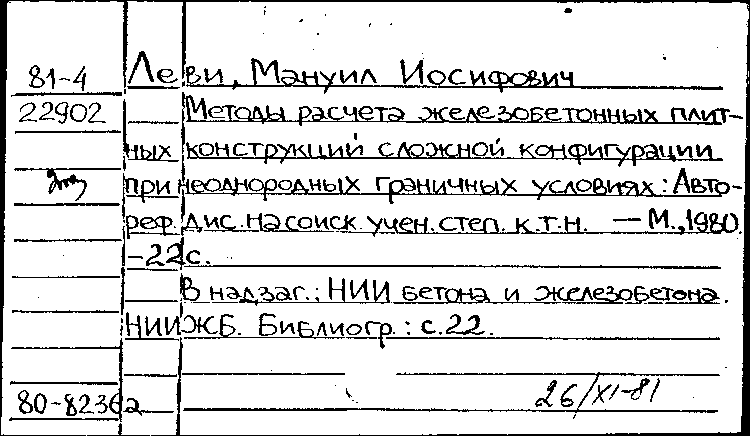 81-4 Леви, Мануил Иосифович
22902 Методы расчета железобетонных плит-
ных конструкций сложной конфигурации
при неоднородных граничных условиях: Авто-
реф. дис. на соиск. учен. степ. к.т.н. — М., 1980
-22с.
В надзаг.: НИИ бетона и железобетона.
НИИЖБ. Библиогр.: с.22.
80-8236а 26/XI-81